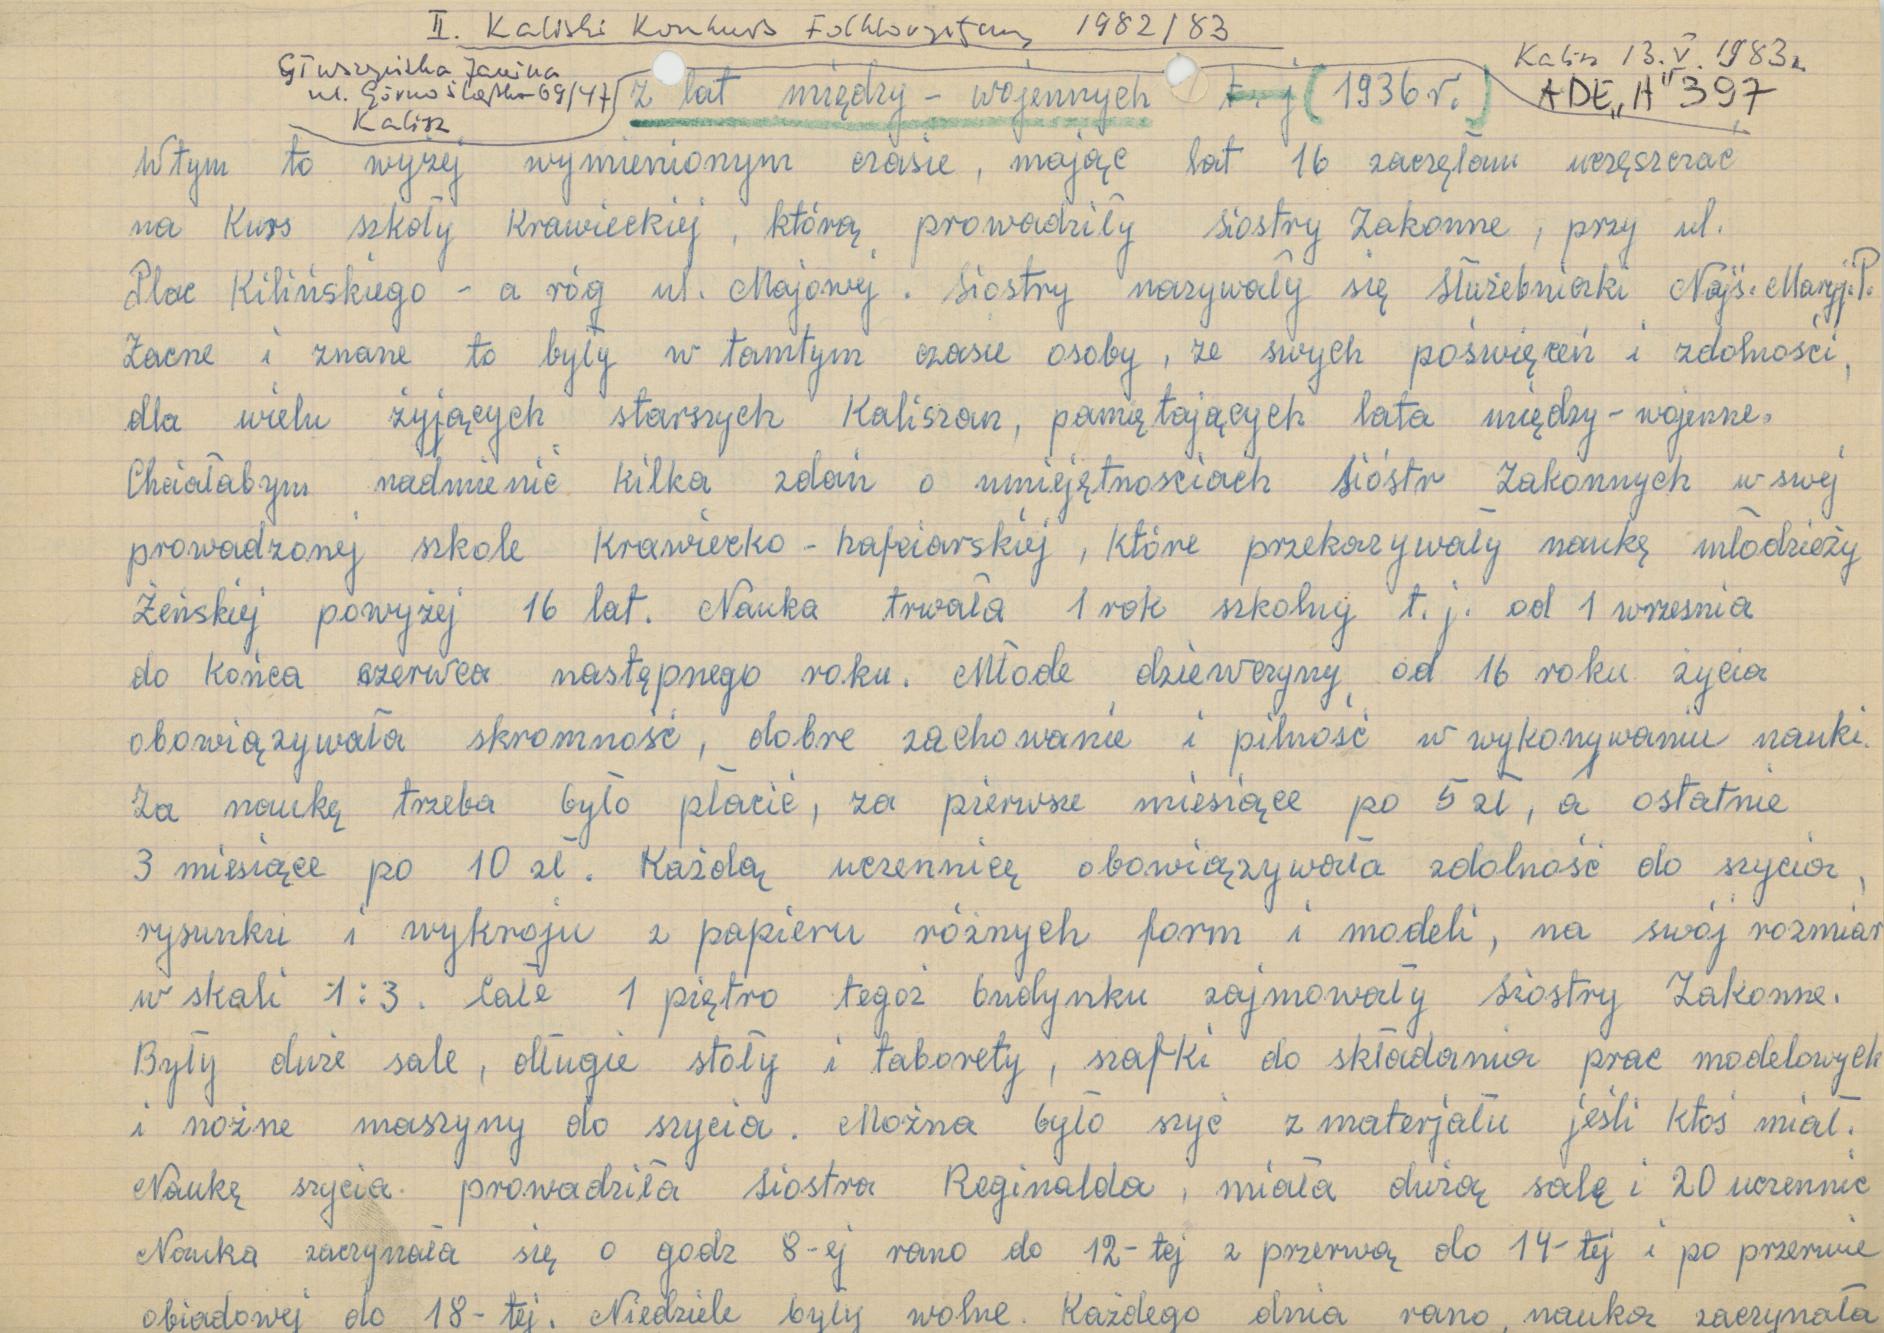 II. Kaliski Konkurs Folklorystyczny 1982/83
Kalisz 13.V.1983r.
Głuszyńska Janina
ul. Górnośląska 69/47
Kalisz
ADE "H" 397
z lat między - wojennych t.j (1936 r.)
W tym to wyżej wymienionym czasie, mając lat 16 zaczęłam uczęszczać
na Kurs szkoły Krawieckiej, którą prowadziły Siostry Zakonne, przy ul.
Plac Kilińskiego - a róg ul. Majowej. Siostry nazywały się Służebniczki Najś. Maryj. P.
Zacne i znane to były w tamtym czasie osoby, ze swych poświęceń i zdolności,
dla wielu żyjących starszych Kaliszan, pamiętających lata między - wojenne.
Chciałabym nadmienić Kilka zdań o umiejętnosciach Sióstr Zakonnych w swej
prowadzonej szkole Krawiecko - hafciarskiej, Które przekazywały naukę młodzieży
Żeńskiej powyżej 16 lat. Nauka trwała 1 rok szkolny t.j. od 1 wrzesnia
do Końca czerwca następnego roku. Młode dziewczyny od 16 roku życia
obowiązywała skromność, dobre zachowanie i pilność w wykonywaniu nauki.
Za naukę trzeba było płacić, za pierwsze miesiące po 5 zł, a ostatnie
3 miesiące po 10 zł. Każdą uczennicę obowiązywała zdolność do szycia,
rysunku i wykroju z papieru różnych form i modeli, na swój rozmiar
w skali 1:3. Całe 1 piętro tegoż budynku zajmowały Siostry Zakonne.
Były duże sale, długie stoły i taborety, szafki do składania prac modelowych
i nożne maszyny do szycia. Można było szyć z materjału jeśli Ktoś miał.
Naukę szycia prowadziła Siostra Reginalda, miała dużą salę i 20 uczennic
Nauka zaczynała się o godz 8-ej rano do 12-tej z przerwą do 14-tej i po przerwie
obiadowej do 18-tej. Niedziele były wolne. Każdego dnia rano, nauka zaczynała